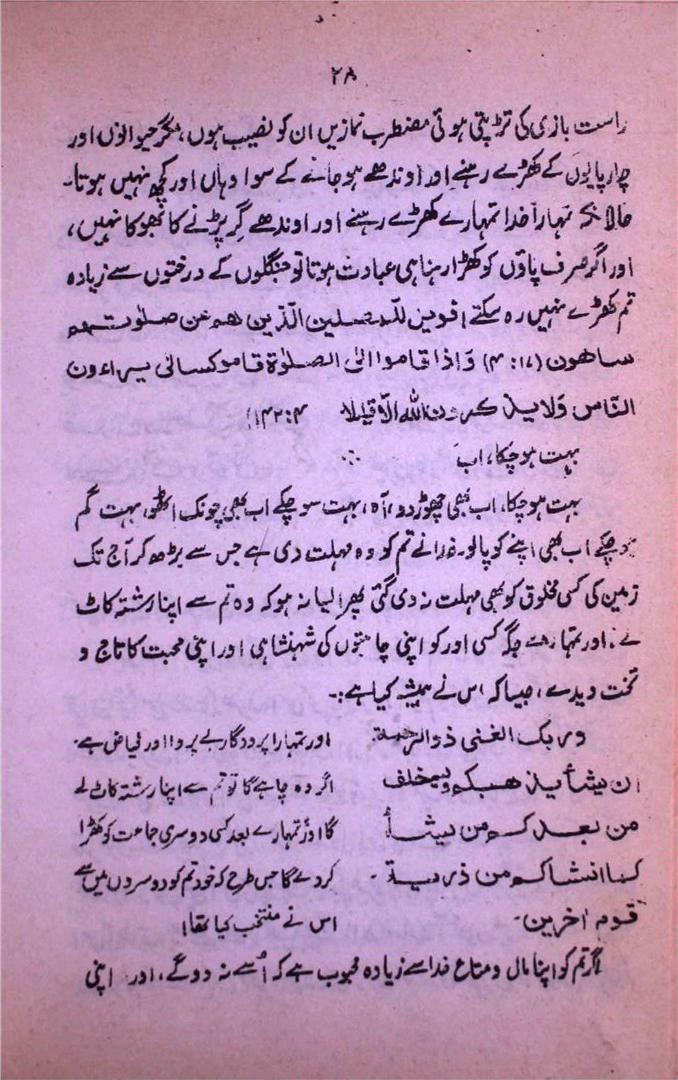 ۲۸
راست بازی کی تڑپتی ہوئی مضطرب نمازیں ان کو نصیب ہوں، مگر حیوانوں اور
چارپایوں کے کھڑے رہنے اور اوندھے ہو جانے کے سوا وہاں اور کچھ نہیں ہوتا۔
حالانکہ تمہارا خدا تمہارے کھڑے رہنے اور اوندھے گر پڑنے کا بھوکا نہیں،
اور اگر صرف پاؤں کو کھڑا رہنا ہی عبادت ہوتا تو جنگلوں کے درختوں سے زیادہ
تم کھڑے نہیں رہ سکتے! فویل للمصلین الذین ھم عن صلوٰتھم
ساھون (۱۷:۴) وَاذا قاموا الیٰ الصلوٰۃ قاموا کسالیٰ یراءون
النّاس وَلا یذکرون اللہ الّا قلیلا ۴:۱۴۲!
بہت ہو چکا، اب
بہت ہو چکا، اب بھی چھوڑ دو، آہ، بہت سو چکے اب بھی چونک اٹھو، بہت گم
ہو چکے اب بھی اپنے کو پالو۔ خدا نے تم کو وہ مہلت دی ہے جس سے بڑھ کر آج تک
زمین کی کسی مخلوق کو بھی مہلت نہ دی گئی پھر ایسا نہ ہو کہ وہ تم سے اپنا رشتہ کاٹ
لے، اور تمہارے جگہ کسی اور کو اپنی چاہتوں کی شہنشاہی اور اپنی محبت کا تاج و
تخت دیدے، جیسا کہ اس نے ہمیشہ کیا ہے:۔
وربک الغنی ذو الرحمۃ اور تمہارا پروردگار بے پروا اور فیاض ہے۔
ان یشأ یذھبکم ویستخلف اگر وہ چاہے گا تو تم سے اپنا رشتہ کاٹ لے
من بعدکم من یشأ گا اور تمہارے بعد کسی دوسری جماعت کو کھڑا
کما انشاکم من ذریۃ۔ کر دے گا جس طرح کہ خود تم کو دوسروں میں سے
قوم اخرین۔ اس نے منتخب کیا تھا!
اگر تم کو اپنا مال و متاع خدا سے زیادہ محبوب ہے کہ اُسے نہ دو گے، اور اپنی